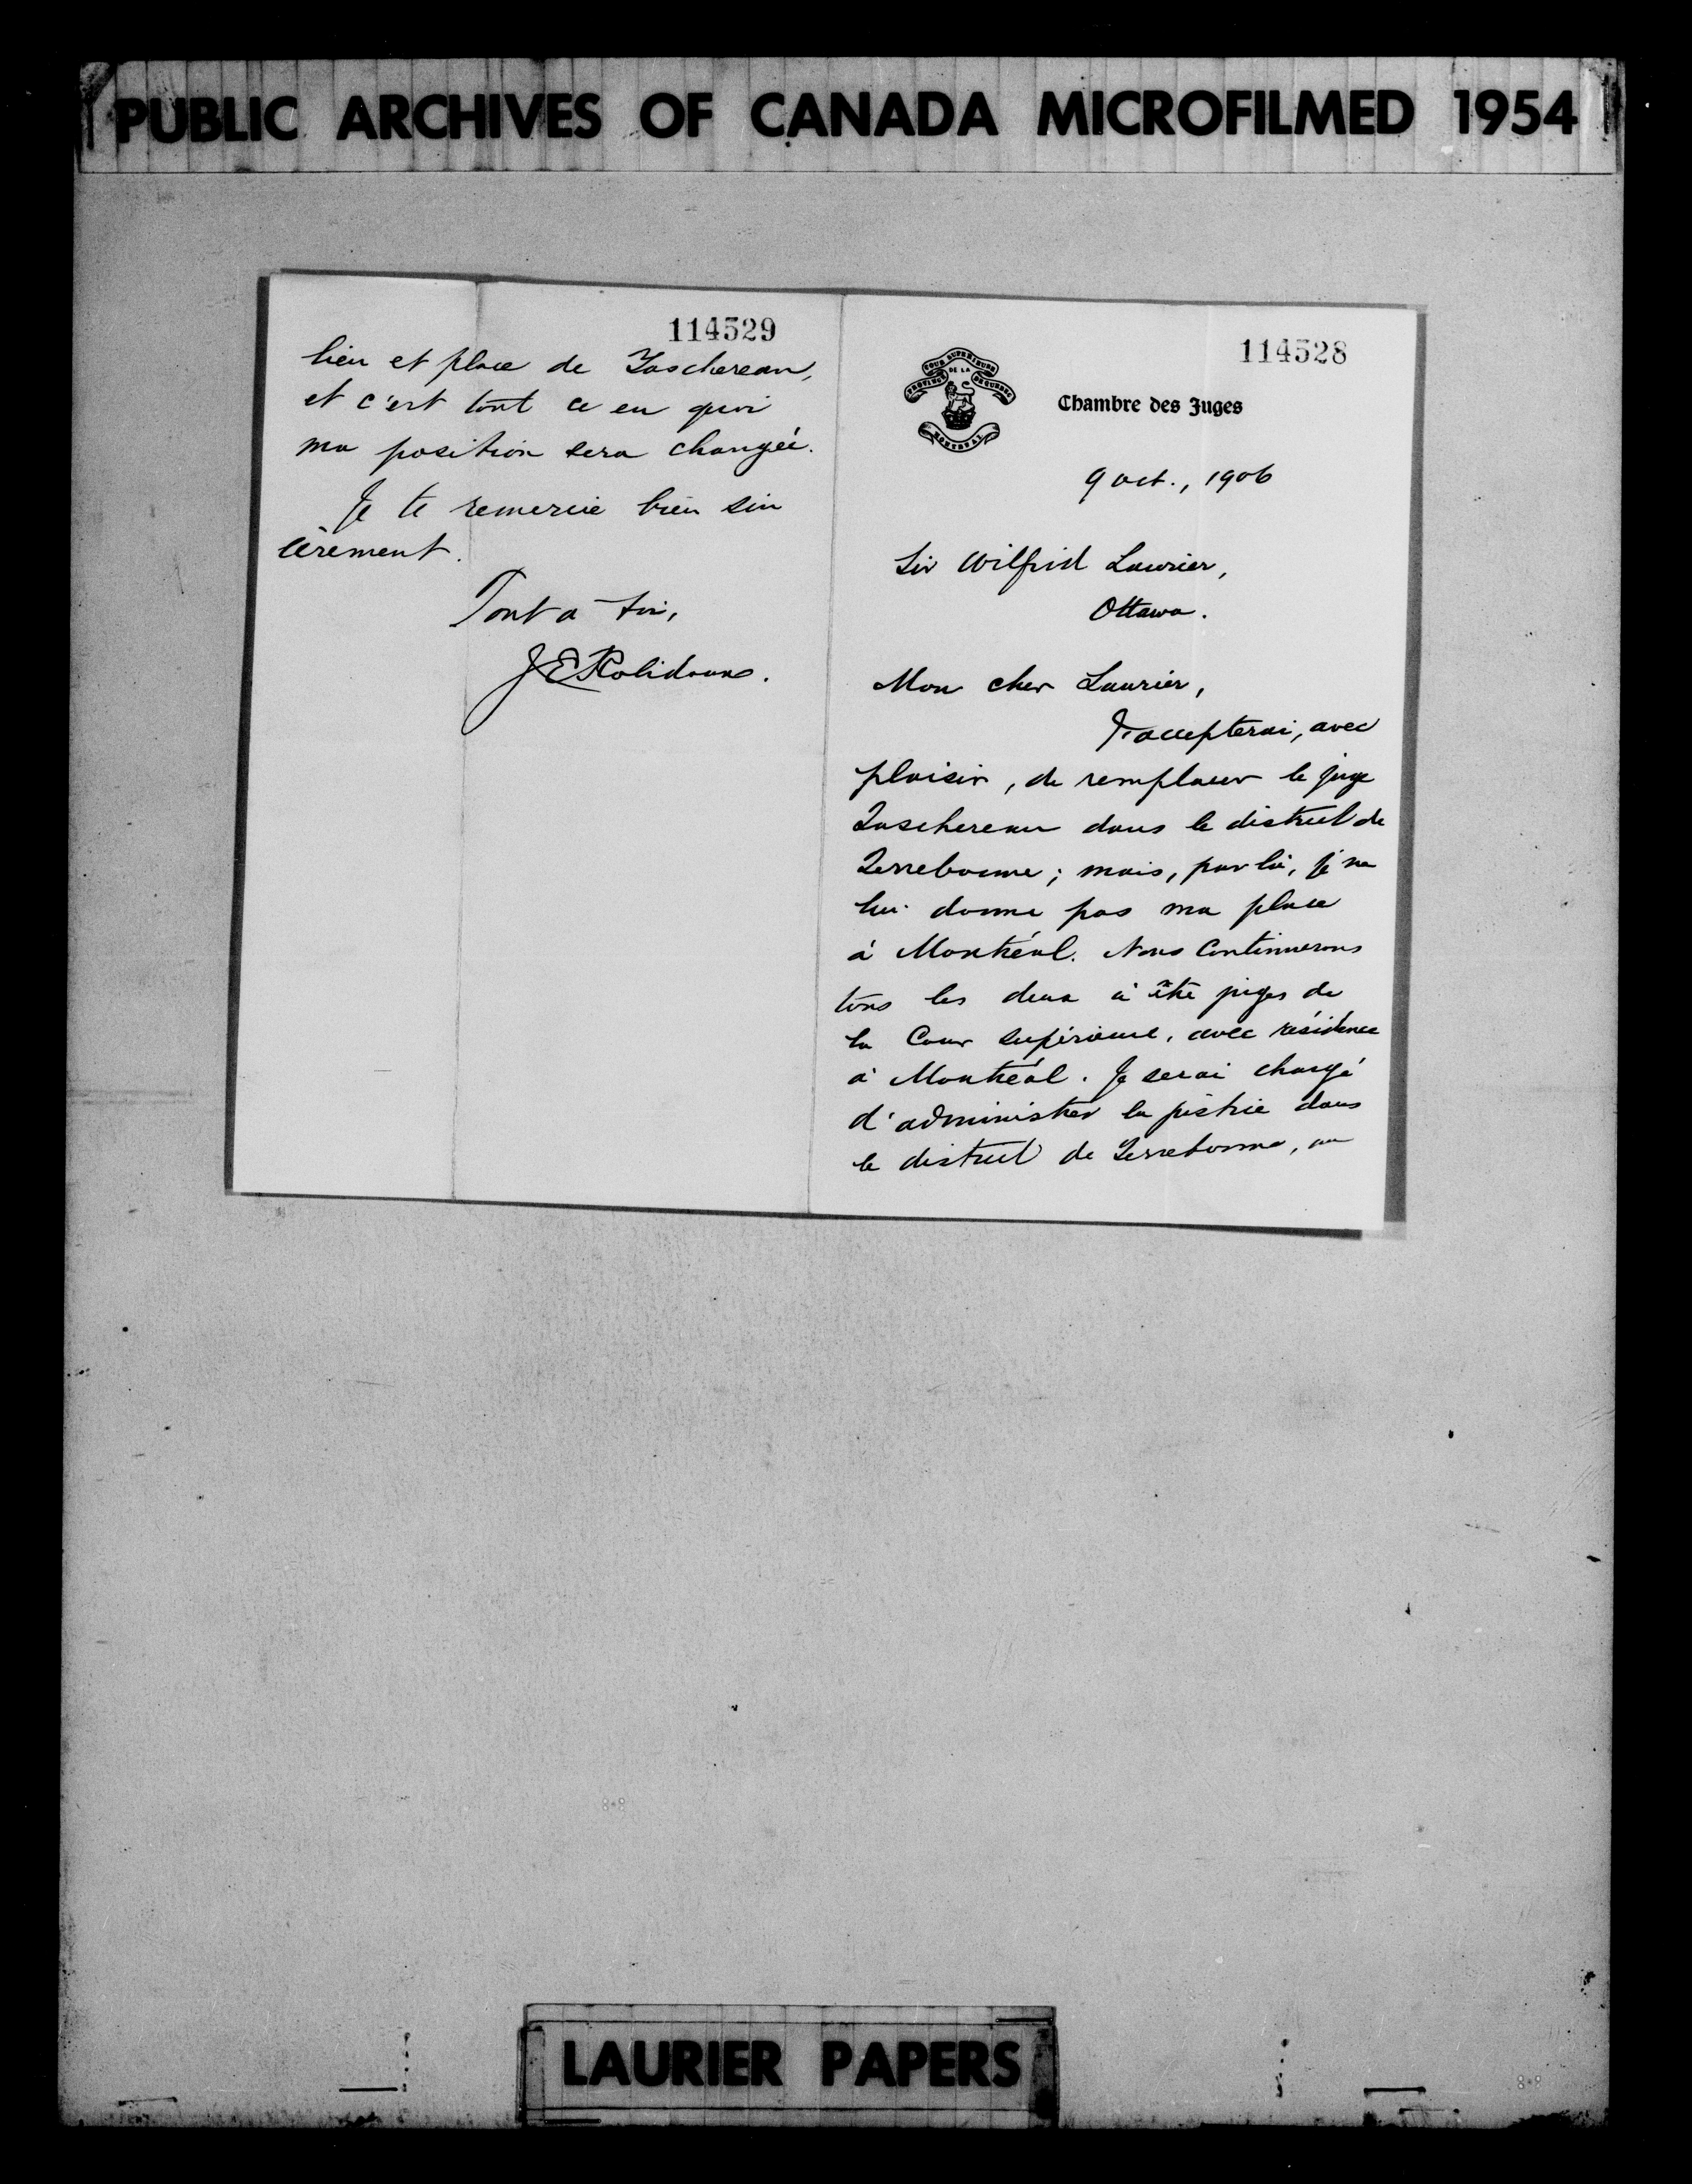 PUBLIC ARCHIVES OF CANADA MICROFILMED 1954
114528
COUR SUPERIEURE
PROVINCE DE LA QUEBEC
MONTREAL
Chambre des Juges
9 oct., 1906
Sir Wilfrid Laurier,
Ottawa.
Mon cher Laurier,
J'accepterai, avec
plaisir, de remplacer le juge
Taschereau dans le district de
Terrebonne; mais, par là, je ne
lui donne pas ma place
à Montréal. Nous continuerons
tous les deux à être juges de
la Cour Supérieure, avec résidence
à Montréal. Je serai chargé
d'administrer la justice dans
le district de Terrebonne, au
114529
lieu et place de Taschereau,
et c'est tout ce en quoi
ma position sera changée.
Je te remercie bien sin
cèrement.
Tout à toi,
J E Robidoux.
LAURIER PAPERS